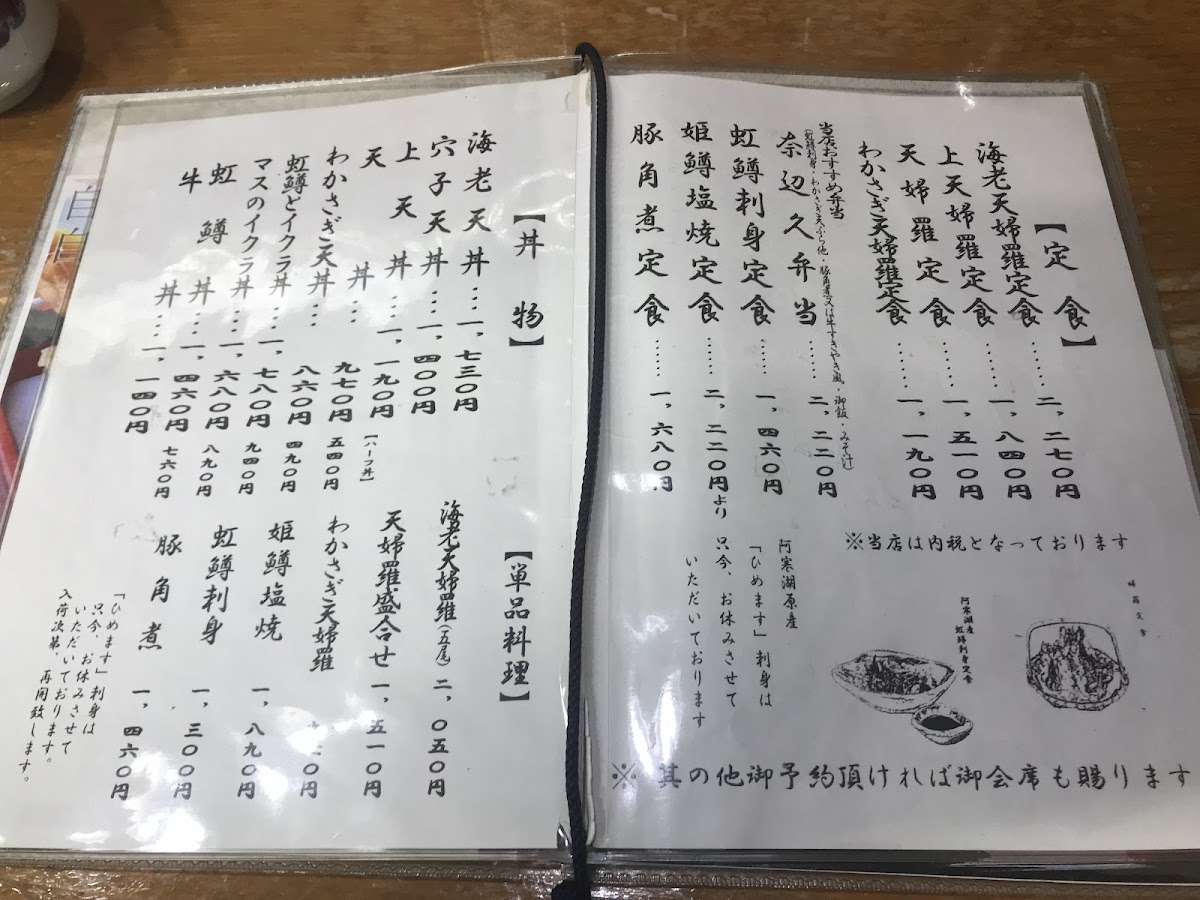 【定食】
海老天婦羅定食……二,二七〇円
上天婦羅定食……一,八四〇円
天婦羅定食……一,五一〇円
わかさぎ天婦羅定食……一,一九〇円
当店おすすめ弁当
奈辺久弁当……二,二二〇円
(虹鱒刺身・わかさぎ天ぷら他・豚角煮又は牛すきやき風・御飯・みそ汁)
虹鱒刺身定食……一,四六〇円
姫鱒塩焼定食……二,二二〇円より
豚角煮定食……一,六八〇円
※当店は内税となっております
阿寒湖産
虹鱒刺身定食
阿寒湖原産
「ひめます」刺身は
只今、お休みさせて
いただいております
※其の他御予約頂ければ御会席も賜ります
【丼物】
海老天丼…一,七三〇円
穴子天丼…一,四〇〇円
上天丼…一,一九〇円
【ハーフ丼】
天丼…九七〇円 五四〇円
わかさぎ天丼…八六〇円 四九〇円
虹鱒とイクラ丼…一,七八〇円 九四〇円
マスのイクラ丼…一,六八〇円 八九〇円
虹鱒丼…一,四六〇円 七六〇円
牛丼…一,一四〇円
【単品料理】
海老天婦羅(五尾) 二,〇五〇円
天婦羅盛合せ 一,五一〇円
わかさぎ天婦羅
姫鱒塩焼 一,八九〇円
虹鱒刺身 一,三〇〇円
豚角煮 一,四六〇円
「ひめます」刺身は
只今、お休みさせて
いただいております。
入荷次第、再開致します。